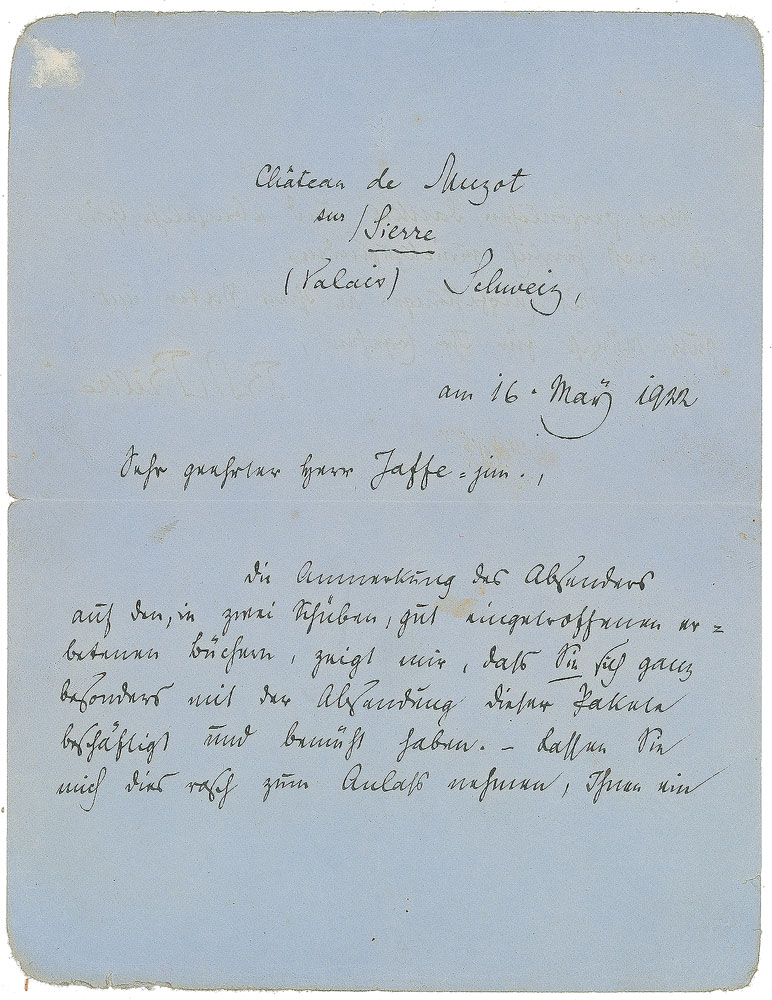 Château de Muzot
sur / Sierre
(Valais) Schweiz,
am 16. März 1922
Sehr geehrter Herr Jaffe-jun.,
die Anmerkung des Absenders
auf den, in zwei Schüben, gut eingetroffenen er=
betenen Büchern, zeigt mir, dass Sie sich ganz
besonders mit der Absendung dieser Pakete
beschäftigt und bemüht haben. – Lassen Sie
mich dies rasch zum Anlass nehmen, Ihnen ein